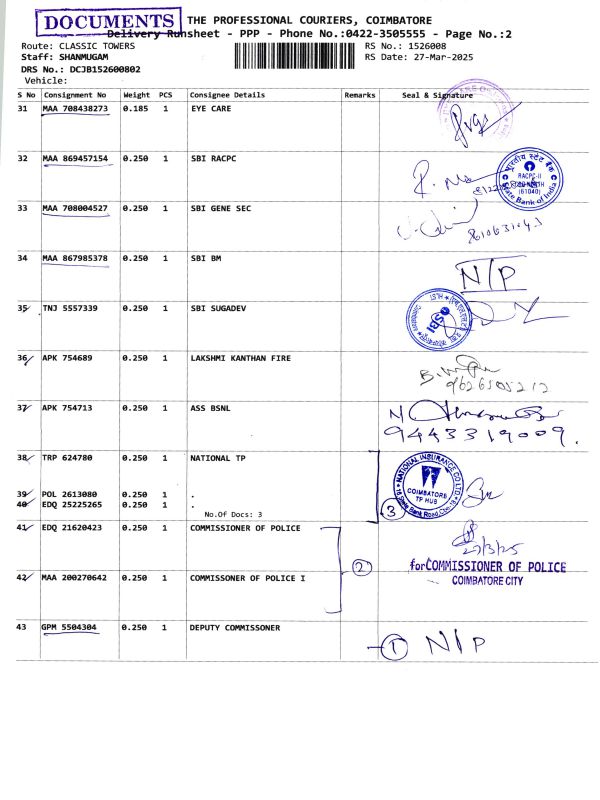 DOCUMENTS
THE PROFESSIONAL COURIERS, COIMBATORE
Delivery Runsheet - PPP - Phone No.:0422-3505555 - Page No.:2
Route: CLASSIC TOWERS
RS No.: 1526008
Staff: SHANMUGAM
RS Date: 27-Mar-2025
DRS No.: DCJB152600802
Vehicle:
S No Consignment No Weight PCS Consignee Details Remarks Seal & Signature
31 MAA 708438273 0.185 1 EYE CARE
32 MAA 869457154 0.250 1 SBI RACPC
भारतीय स्टेट बैंक
RACPC-II
(61040)
State Bank of India
33 MAA 708004527 0.250 1 SBI GENE SEC
34 MAA 867985378 0.250 1 SBI BM
N/P
35 TNJ 5557339 0.250 1 SBI SUGADEV
SBI
36 APK 754689 0.250 1 LAKSHMI KANTHAN FIRE
9626505212
37 APK 754713 0.250 1 ASS BSNL
9443319009.
38 TRP 624780 0.250 1 NATIONAL TP
NATIONAL INSURANCE CO LTD
COIMBATORE
TP HUB
39 POL 2613080 0.250 1 .
40 EDQ 25225265 0.250 1 .
No.Of Docs: 3
3
41 EDQ 21620423 0.250 1 COMMISSIONER OF POLICE
27/3/25
for COMMISSIONER OF POLICE
COIMBATORE CITY
2
42 MAA 200270642 0.250 1 COMMISSONER OF POLICE I
43 GPM 5504304 0.250 1 DEPUTY COMMISSONER
1 N/P